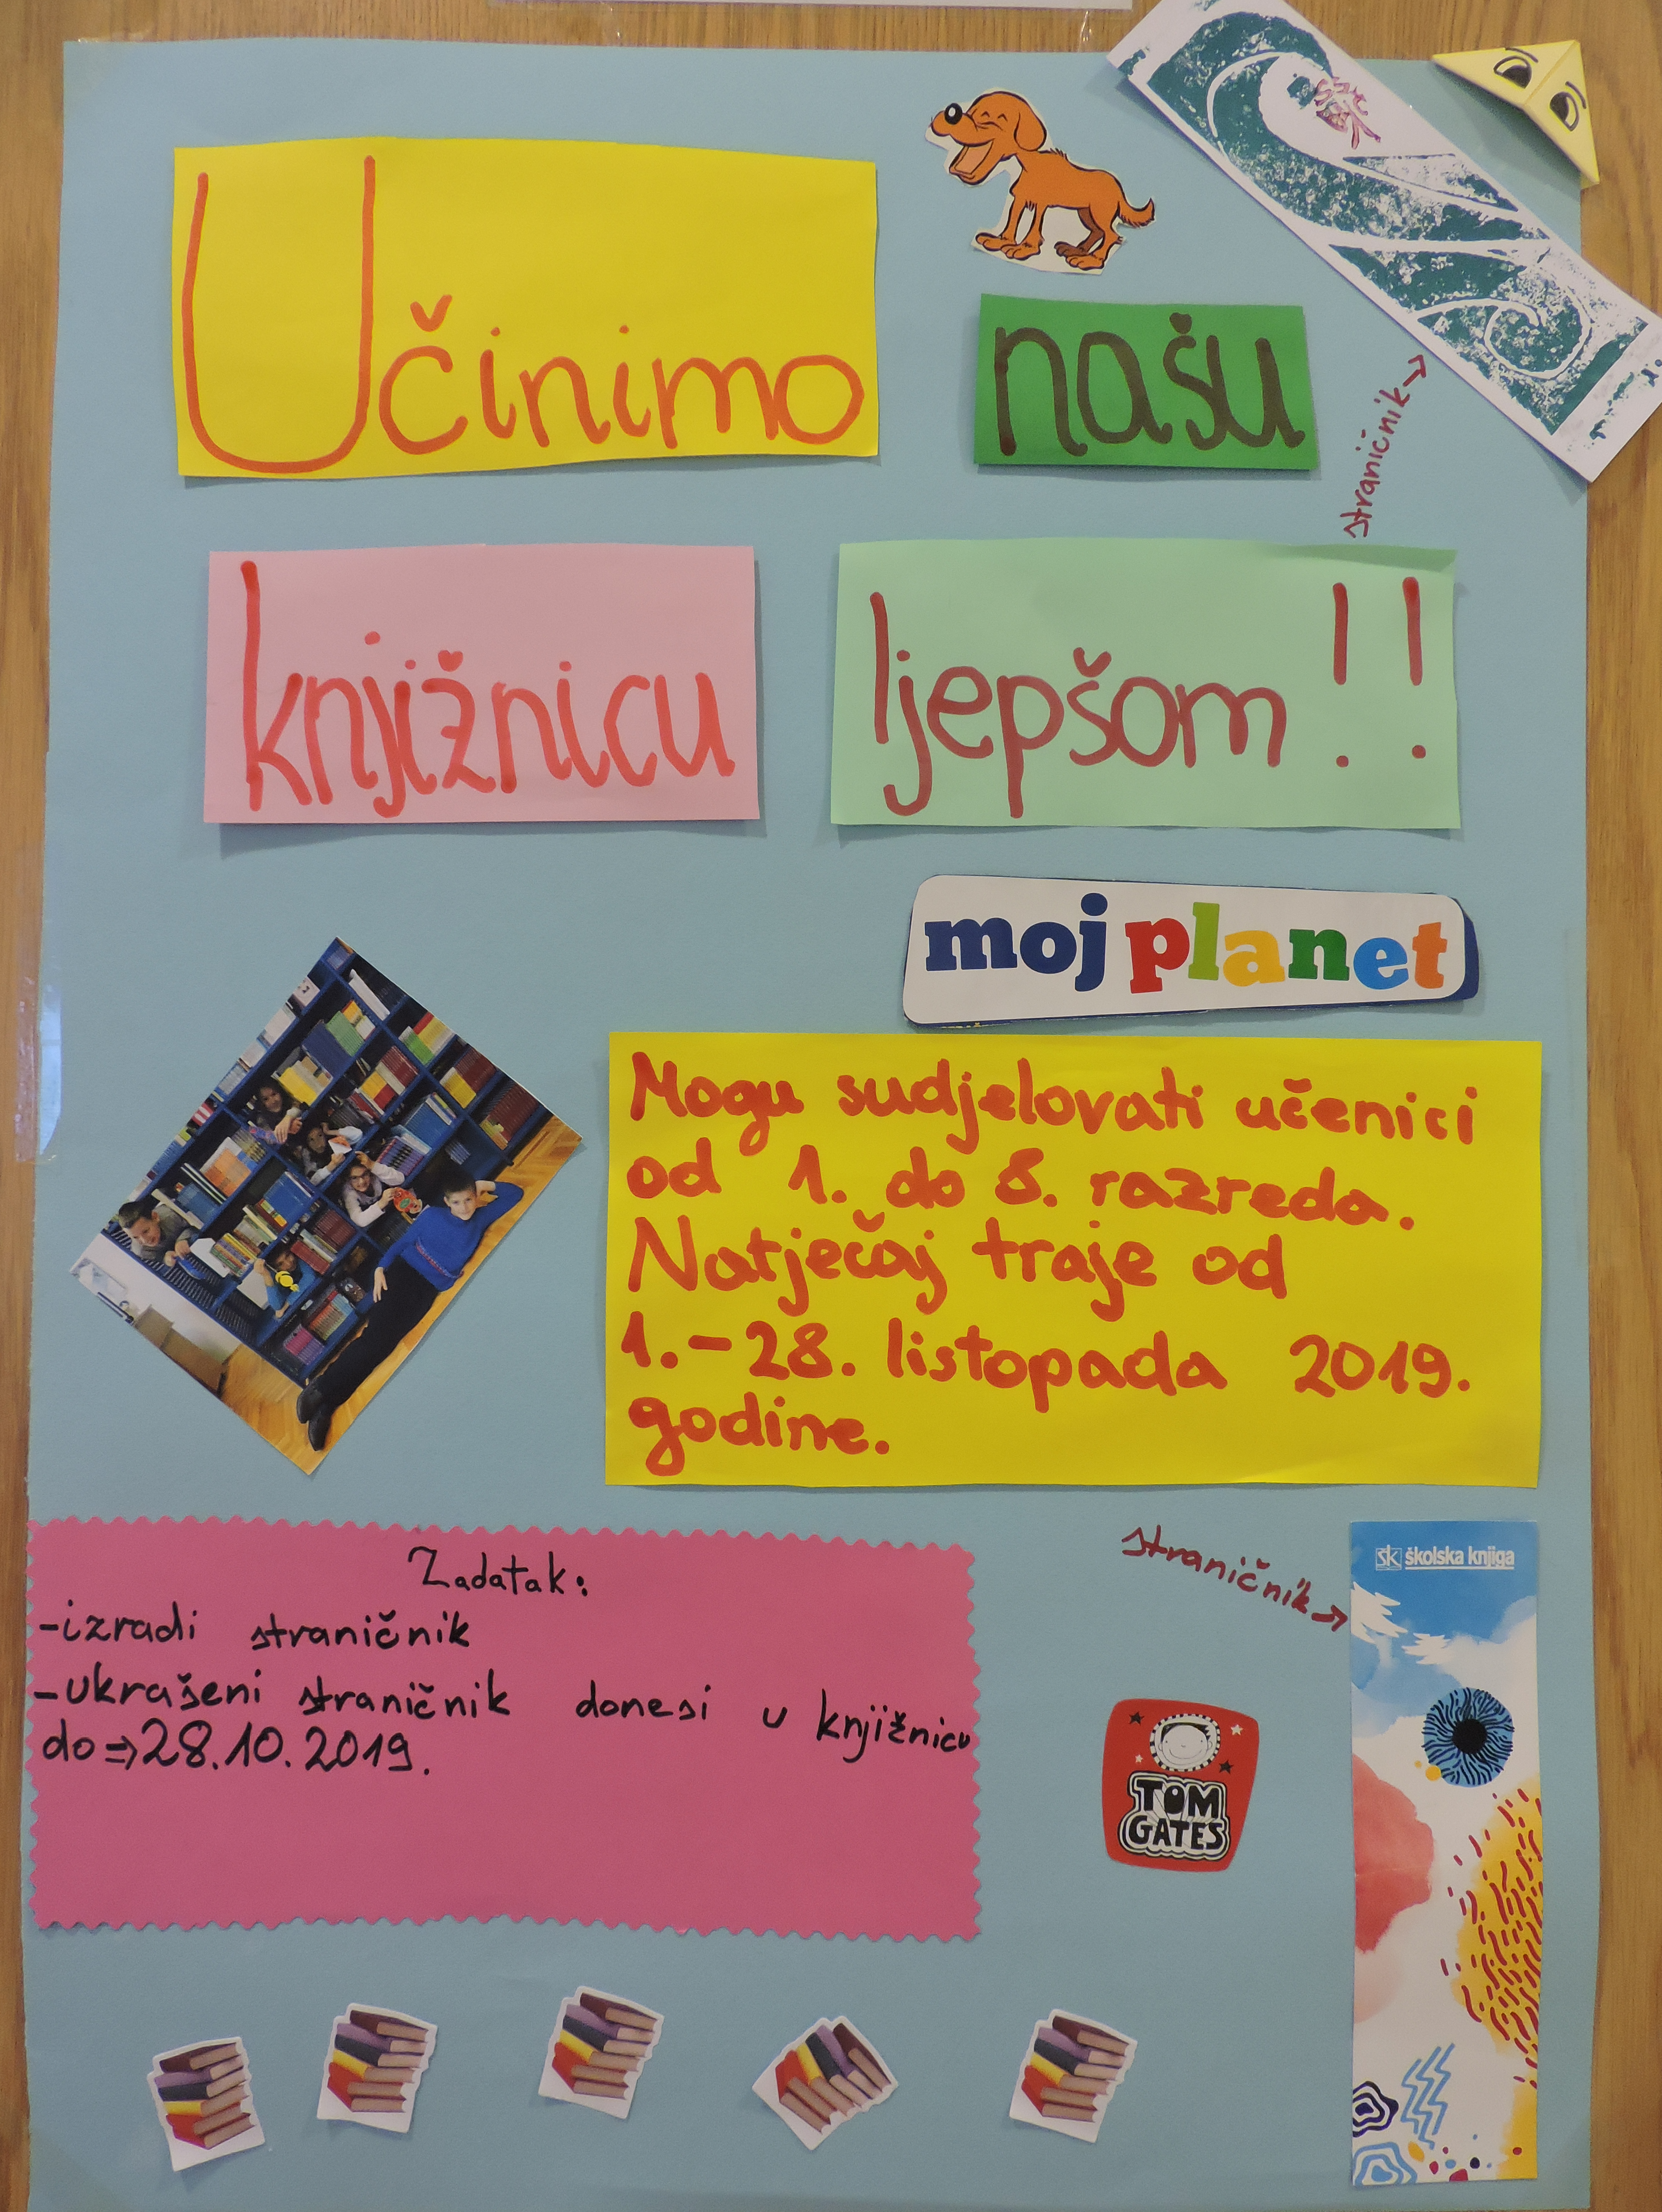 Učinimo našu
straničnik
knjižnicu ljepšom!!
moj planet
Mogu sudjelovati učenici
od 1. do 8. razreda.
Natječaj traje od
1.-28. listopada 2019.
godine.
Zadatak:
-izradi straničnik
-ukrašeni straničnik donesi u knjižnicu
do⇒28.10.2019.
straničnik
šk školska knjiga
TOM
GATES